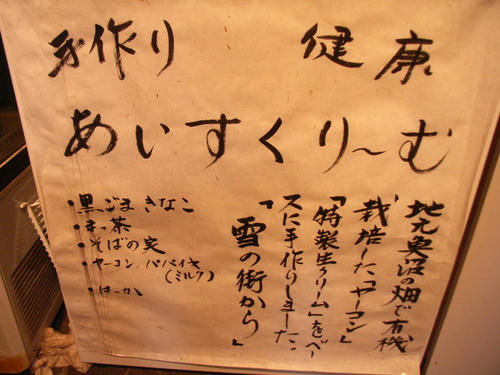 手作り 健康
あいすくり〜む
・黒ごまきなこ
・まっ茶
・そばの実
・ヤーコン、パパイヤ
(ミルク)
・はっか
地元魚沼の畑で有機
栽培した「ヤーコン」
「特製生クリーム」をベー
スに手作りしました。
『雪の街から』